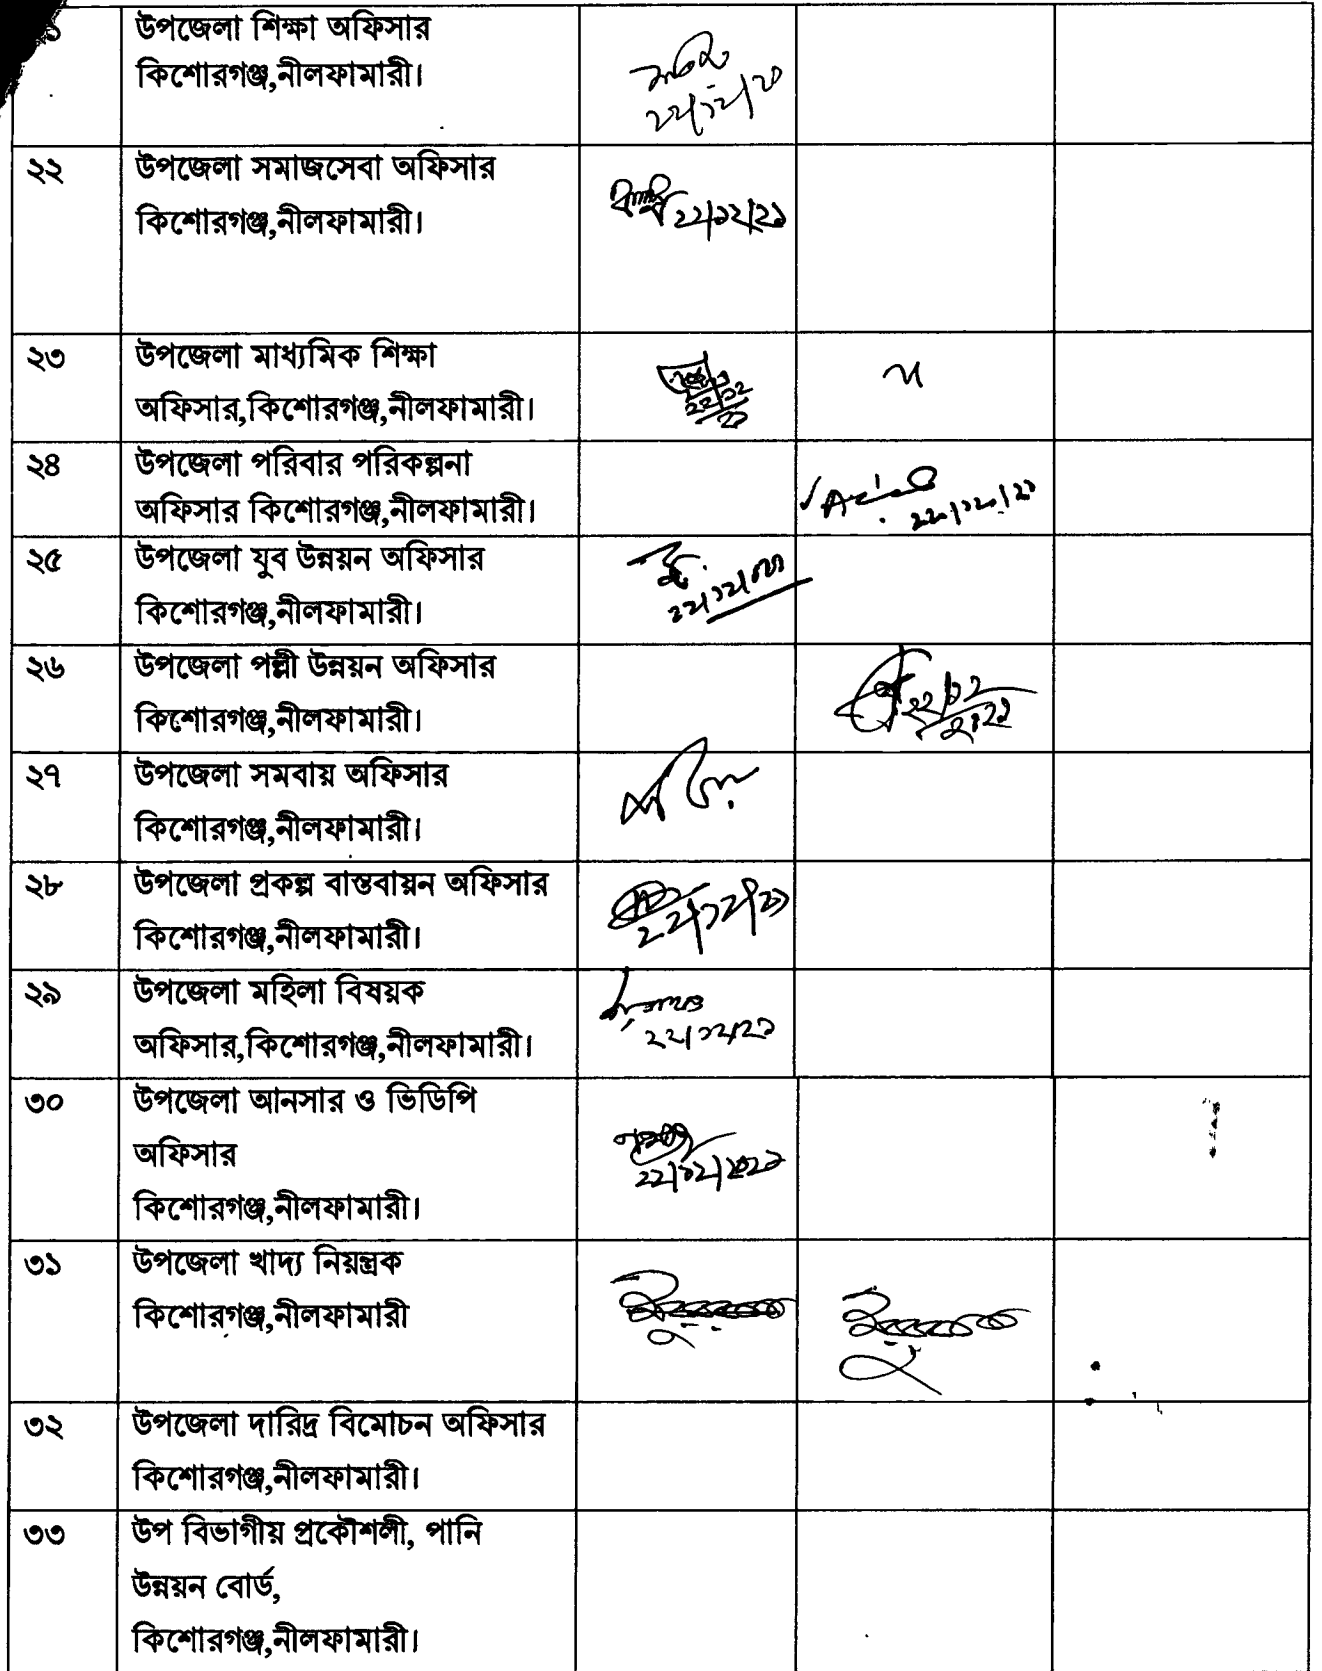 উপজেলা শিক্ষা অফিসার
কিশোরগঞ্জ,নীলফামারী।
২২ উপজেলা সমাজসেবা অফিসার
কিশোরগঞ্জ,নীলফামারী।
২২/১২/২১
২৩ উপজেলা মাধ্যমিক শিক্ষা
অফিসার,কিশোরগঞ্জ,নীলফামারী।
২৪ উপজেলা পরিবার পরিকল্পনা
অফিসার কিশোরগঞ্জ,নীলফামারী।
২৫ উপজেলা যুব উন্নয়ন অফিসার
কিশোরগঞ্জ,নীলফামারী।
২৬ উপজেলা পল্লী উন্নয়ন অফিসার
কিশোরগঞ্জ,নীলফামারী।
২২/১২
২০২১
২৭ উপজেলা সমবায় অফিসার
কিশোরগঞ্জ,নীলফামারী।
২৮ উপজেলা প্রকল্প বাস্তবায়ন অফিসার
কিশোরগঞ্জ,নীলফামারী।
২২/১২/২১
২৯ উপজেলা মহিলা বিষয়ক
অফিসার,কিশোরগঞ্জ,নীলফামারী।
২২/১২/২১
৩০ উপজেলা আনসার ও ভিডিপি
অফিসার
কিশোরগঞ্জ,নীলফামারী।
২২/১২/২০২১
৩১ উপজেলা খাদ্য নিয়ন্ত্রক
কিশোরগঞ্জ,নীলফামারী
৩২ উপজেলা দারিদ্র বিমোচন অফিসার
কিশোরগঞ্জ,নীলফামারী।
৩৩ উপ বিভাগীয় প্রকৌশলী, পানি
উন্নয়ন বোর্ড,
কিশোরগঞ্জ,নীলফামারী।